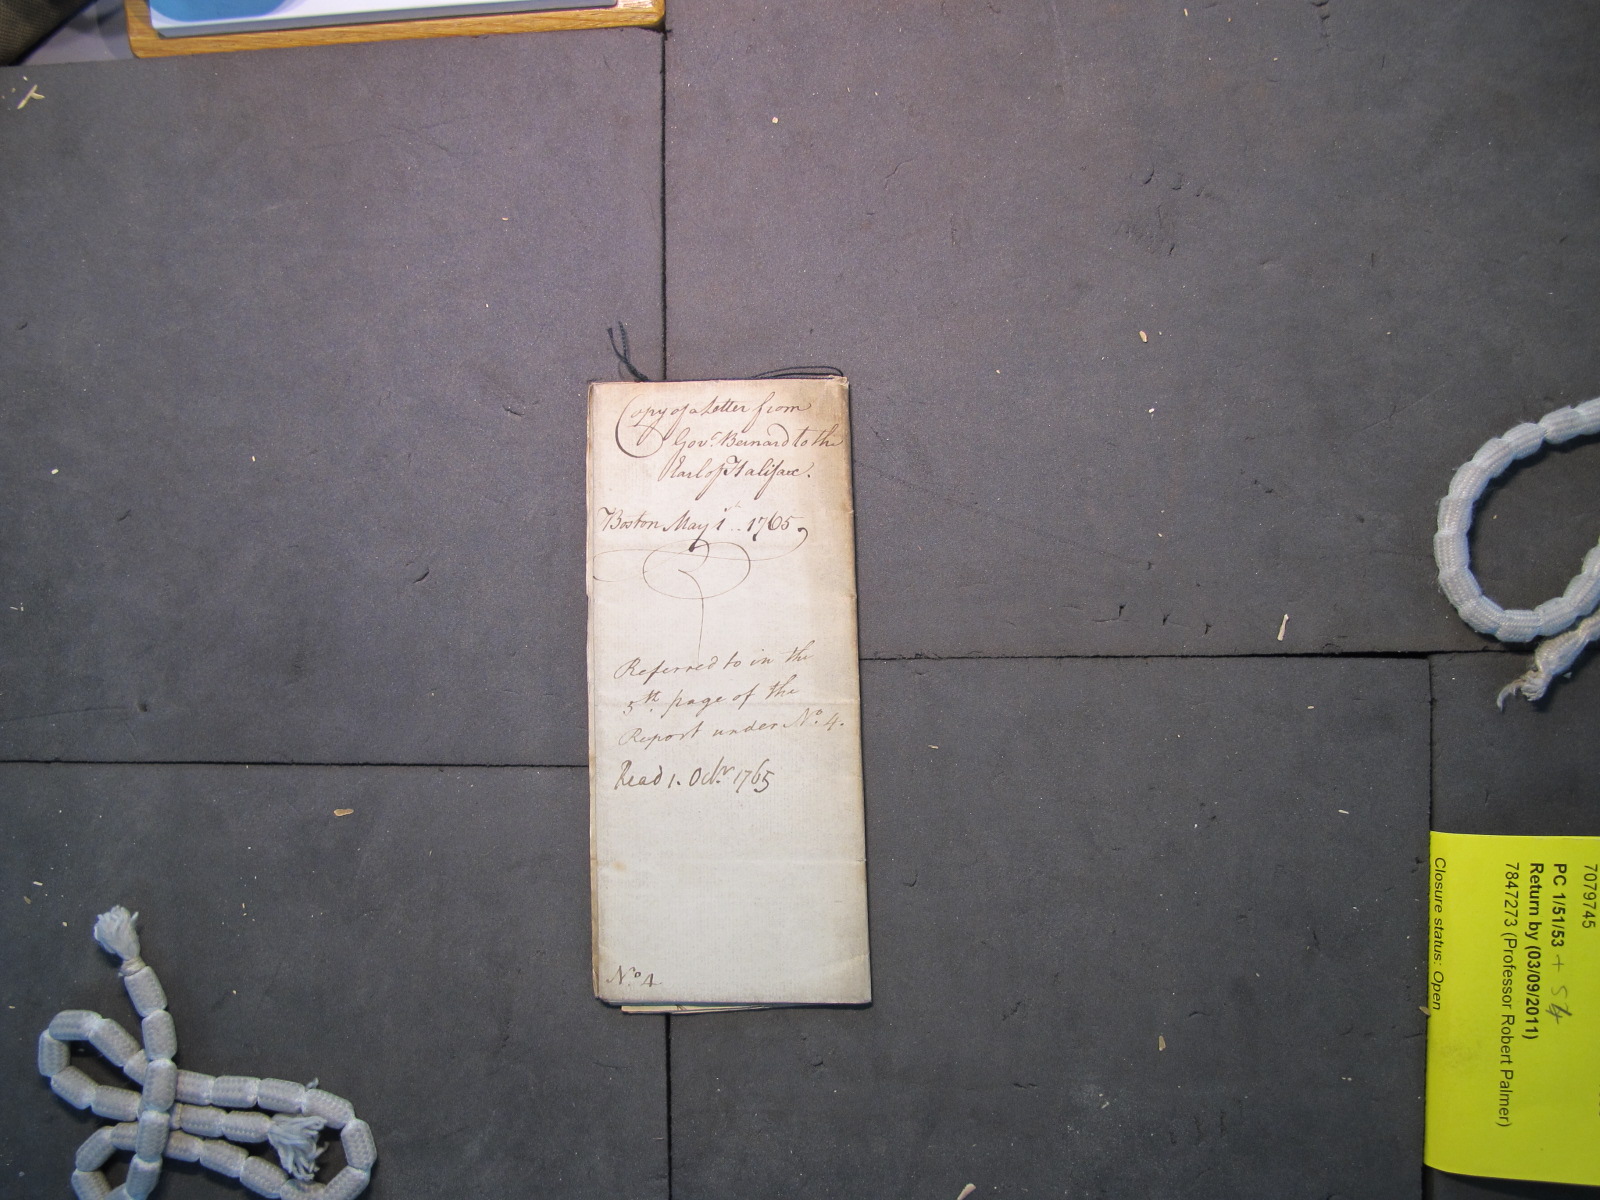 Copy of a Letter from
Gov.r Bernard to the
Earl of Halifax.
Boston May 1st.. 1765.
Referred to in the
5th. page of the
Report under No. 4.
Read 1. Octr. 1765
No. 4
7079745
PC 1/51/53 + 54
Return by (03/09/2011)
7847273 (Professor Robert Palmer)
Closure status: Open